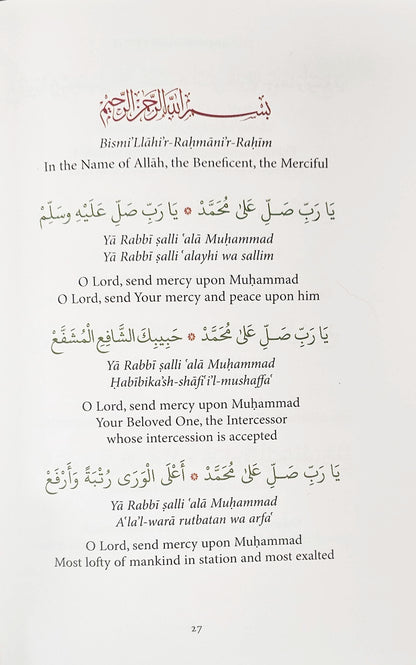 بِسْمِ اللهِ الرَّحْمٰنِ الرَّحِيْمِ
Bismi’Llāhi’r-Raḥmāni’r-Raḥīm
In the Name of Allāh, the Beneficent, the Merciful
يَا رَبِّ صَلِّ عَلَىٰ مُحَمَّدْ ۞ يَا رَبِّ صَلِّ عَلَيْهِ وَسَلِّمْ
Yā Rabbī ṣalli ʿalā Muḥammad
Yā Rabbī ṣalli ʿalayhi wa sallim
O Lord, send mercy upon Muḥammad
O Lord, send Your mercy and peace upon him
يَا رَبِّ صَلِّ عَلَىٰ مُحَمَّدْ ۞ حَبِيبِكَ الشَّافِعِ الْمُشَفَّعْ
Yā Rabbī ṣalli ʿalā Muḥammad
Ḥabībika’sh-shāfiʿi’l-mushaffaʿ
O Lord, send mercy upon Muḥammad
Your Beloved One, the Intercessor
whose intercession is accepted
يَا رَبِّ صَلِّ عَلَىٰ مُحَمَّدْ ۞ أَعْلَى الْوَرَى رُتْبَةً وَأَرْفَعْ
Yā Rabbī ṣalli ʿalā Muḥammad
Aʿla’l-warā rutbatan wa arfaʿ
O Lord, send mercy upon Muḥammad
Most lofty of mankind in station and most exalted
27